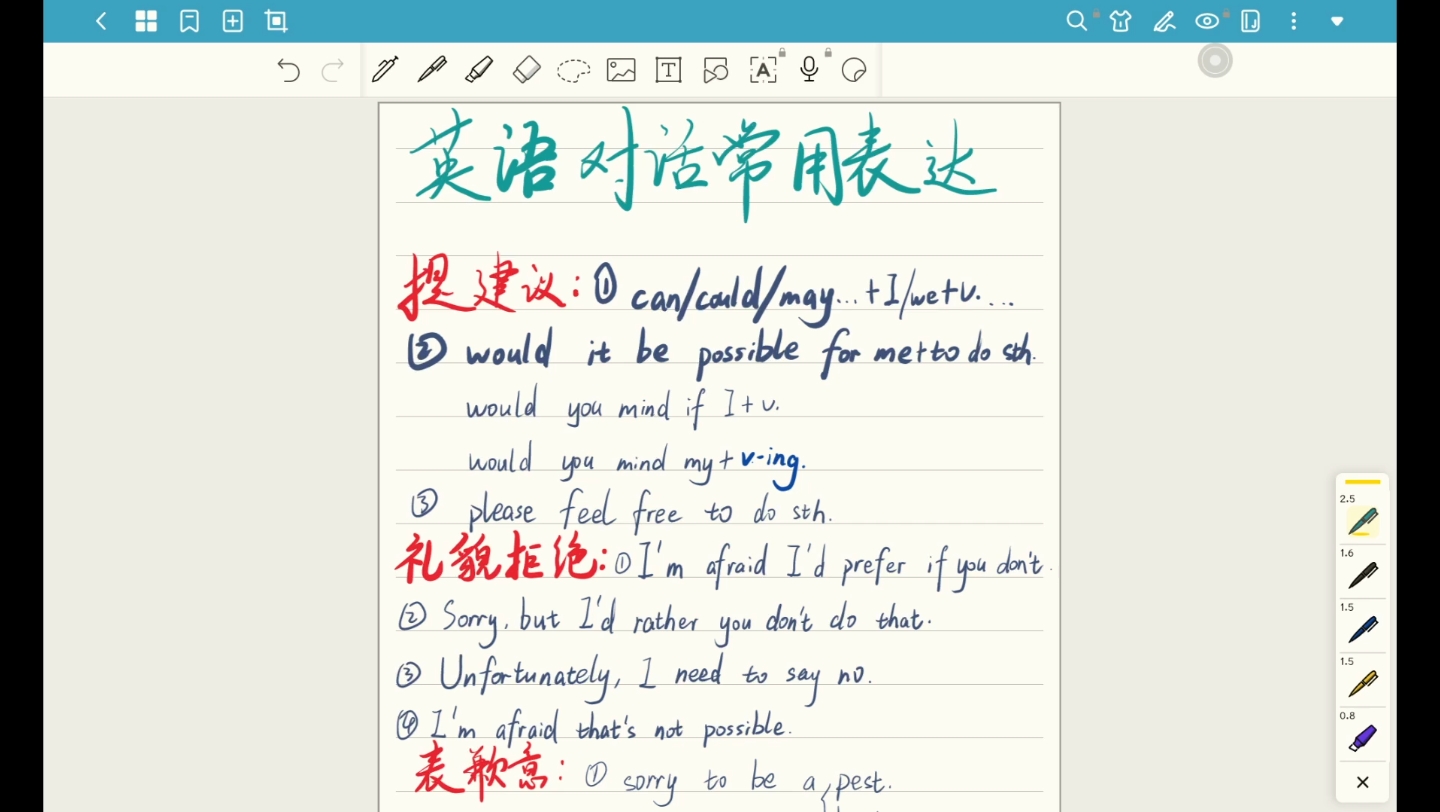 英语对话常用表达
提建议:① can/could/may...+I/we+v....
② would it be possible for me++to do sth.
would you mind if I+v.
would you mind my+v-ing.
③ please feel free to do sth.
礼貌拒绝:①I'm afraid I'd prefer if you don't.
② Sorry, but I'd rather you don't do that.
③ Unfortunately, I need to say no.
④ I'm afraid that's not possible.
表歉意:① sorry to be a pest.
2.5
1.6
1.5
1.5
0.8